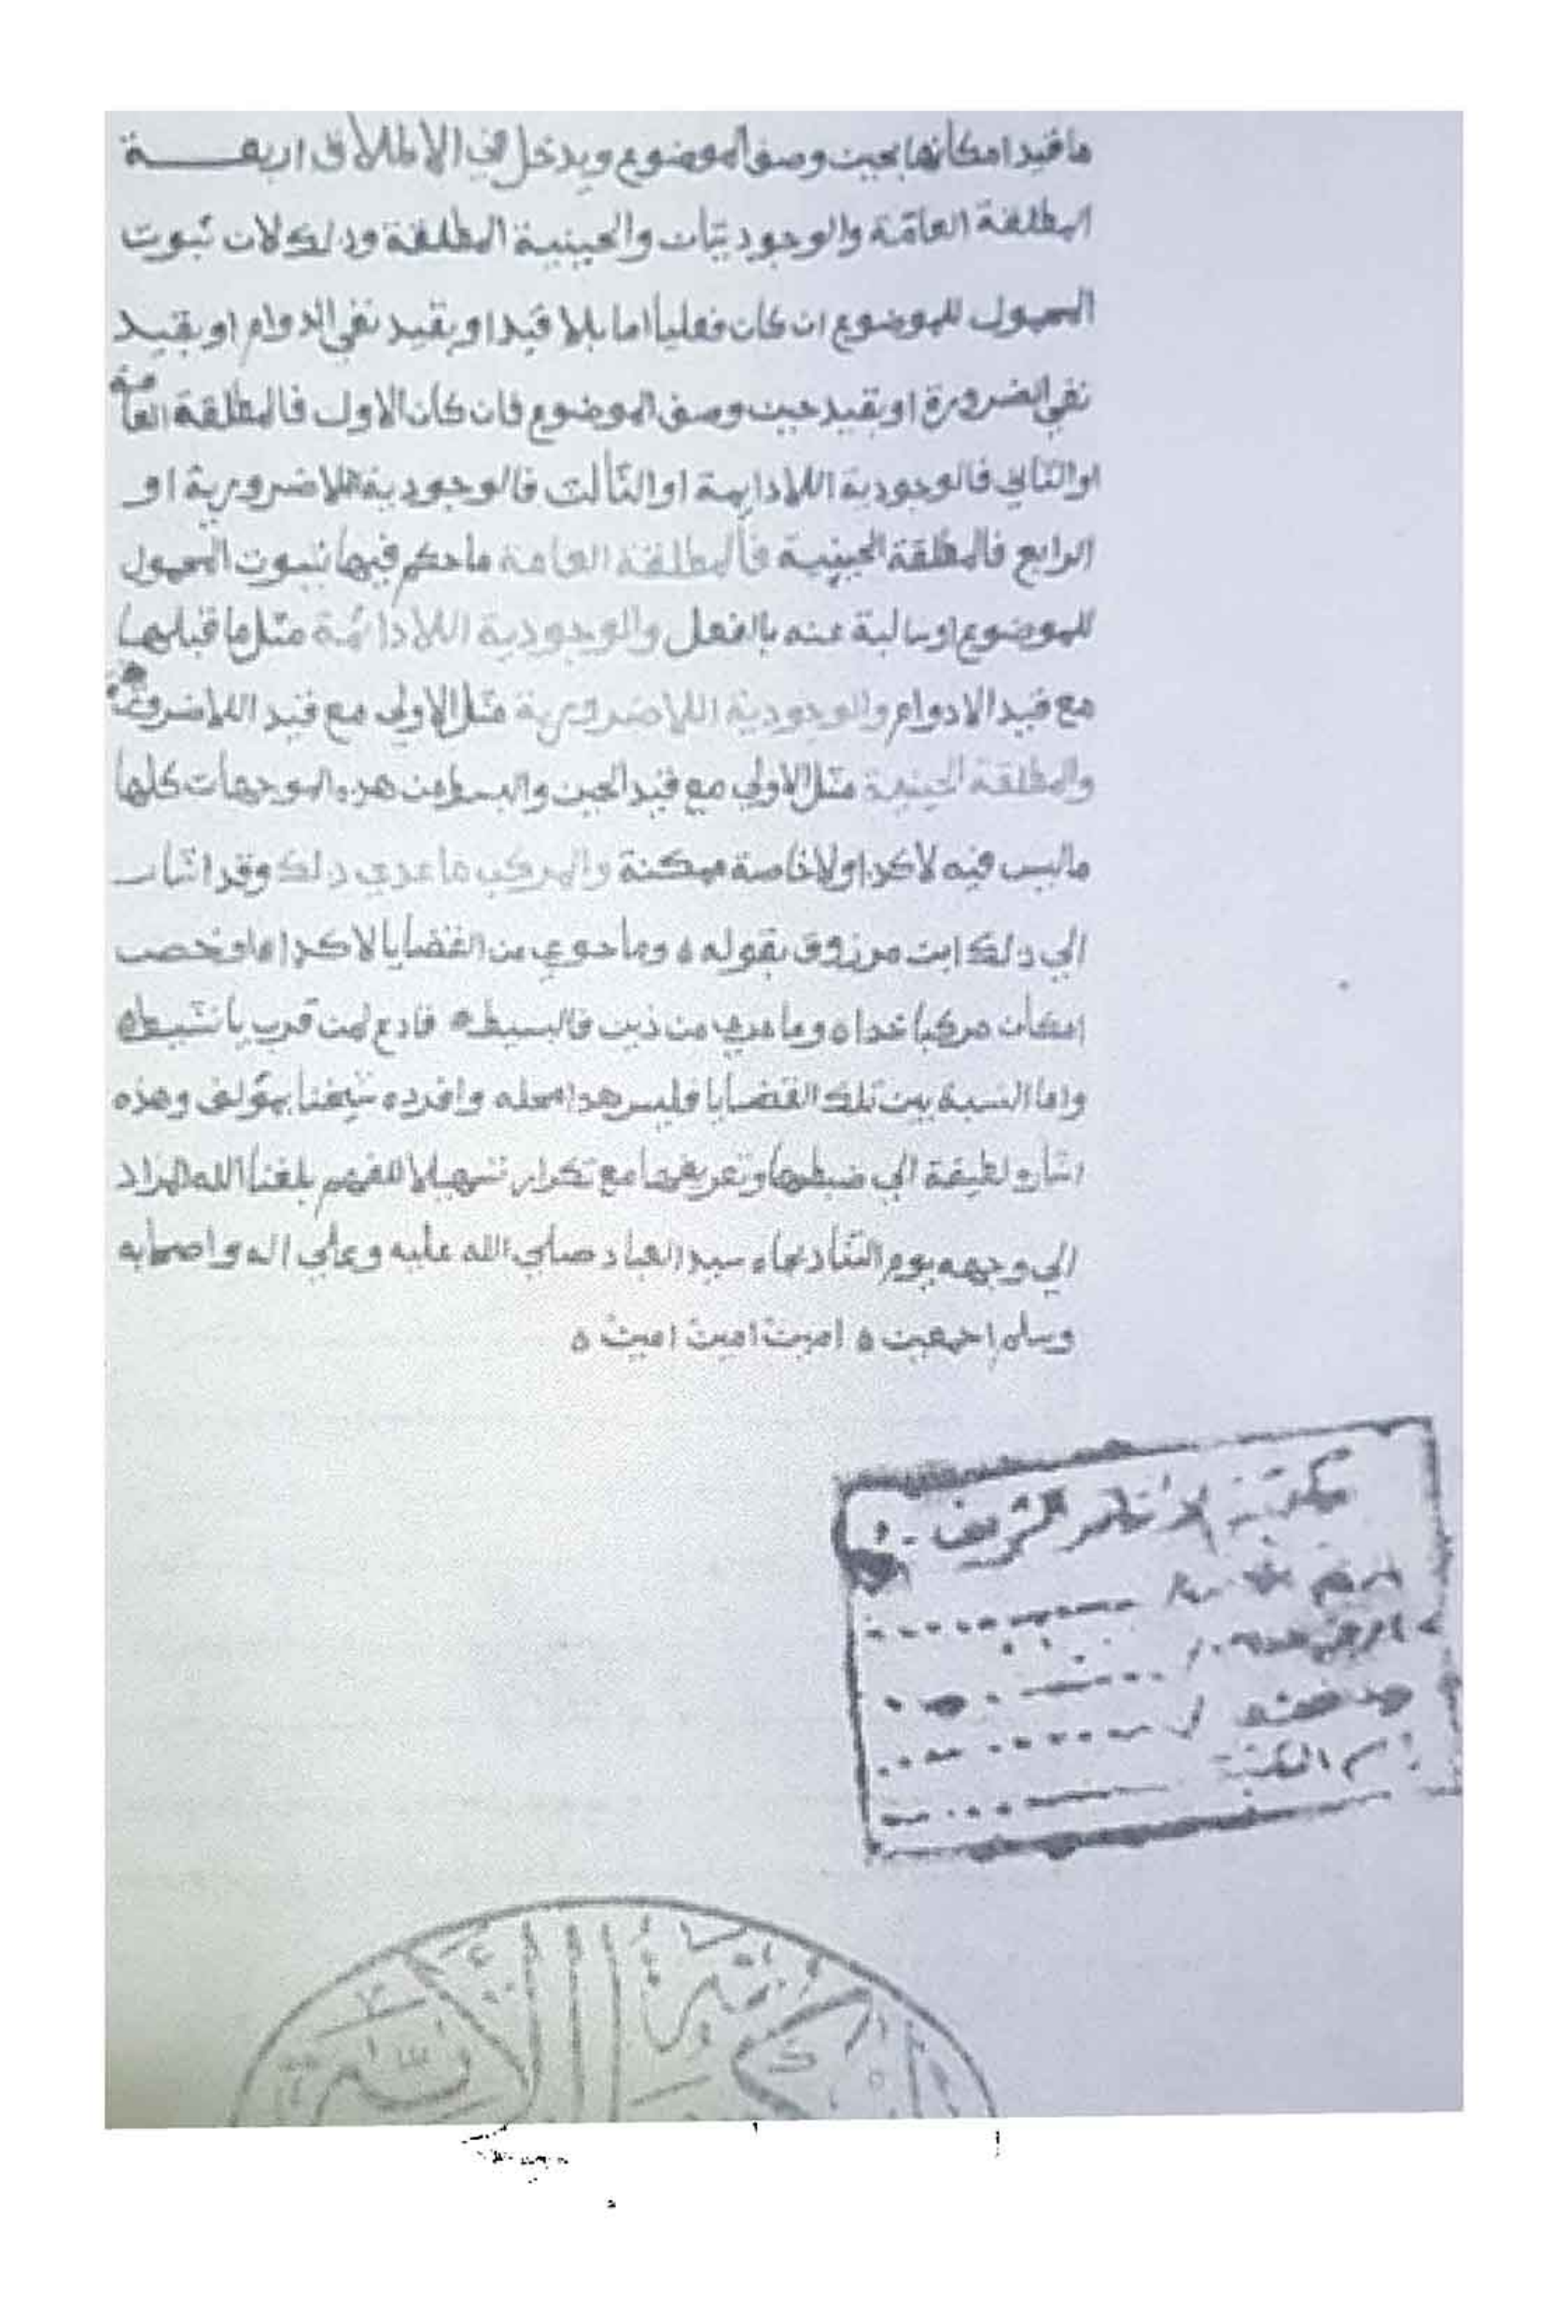 ما قيد امكانها بحين وصف الموضوع ويدخل في الاطلاق اربعـــة
المطلقة العامّة والوجوديّات والحينية المطلقة ودلك لان ثبوت
المحمول للموضوع ان كان فعليا اما بلا قيد او بقيد نفي الدوام او بقيد
نفي الضرورة او بقيد حين وصف الموضوع فان كان الاول فالمطلقة العامة
او الثاني فالوجودية اللادايمة او الثالث فالوجودية اللاضرورية او
الرابع فالمطلقة الحينية فالمطلقة العامة ما حكم فيها بثبوت المحمول
للموضوع او سالبة عنه باالفعل والوجودية اللادائمة مثل ما قبلها
مع قيد الادوام والوجودية اللاضرورية مثل الاولي مع قيد اللاضرورة
والمطلقة الحينية مثل الاولي مع قيد الحين والبسيط من هده الموجهات كلها
ما ليس فيه لاكدا ولا خاصة ممكنة والمركب ما عدي دلك وقد اشار
الي دلك ابن مرزوق بقوله ه وما حوي من القضايا لاكدا ما وخصب
امكان مركبا غدا ه وما عري من ذين فالبسيطه فادع لمن قرب يا نشيطه
واما النسبة بين تلك القضايا فليس هدا محله وافرده شيخنا بمؤلف وهذه
اشارة لطيفة الي ضبطها وتعريفها مع تكرار تسهيلا للفهم بلغنا الله المراد
الي وجهه يوم التناد بجاه سيد العباد صلي الله عليه وعلي اله واصحابه
وسلم اجمعين ه امين امين امين ه
مكتبة الازهر الشريف